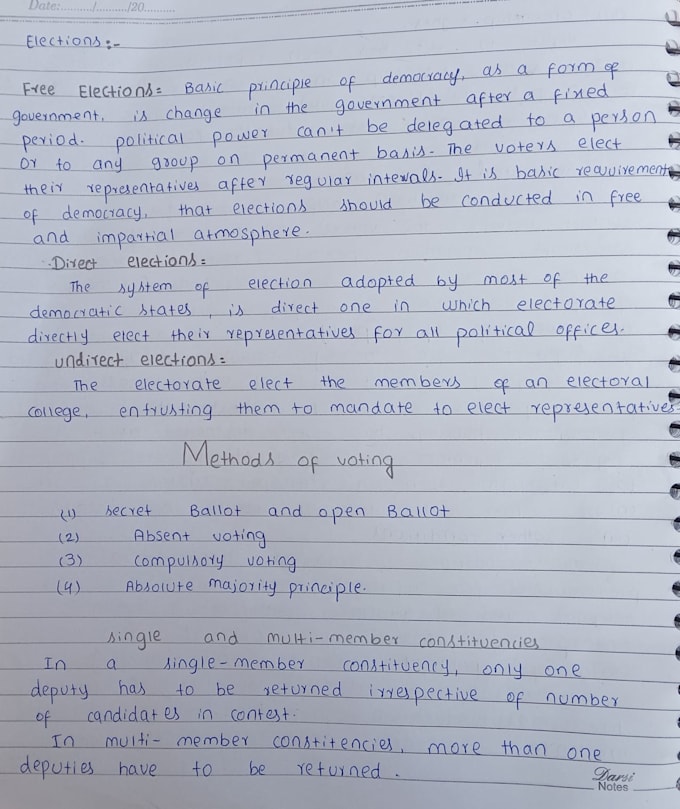 Date:............/............/20............
Elections:-
Free Elections= Basic principle of democracy, as a form of
government, is change in the government after a fixed
period. political power can't be delegated to a person
or to any group on permanent basis- The voters elect
their representatives after regular intervals. It is basic requirement
of democracy, that elections should be conducted in free
and impartial atmosphere.
Direct elections=
The system of election adopted by most of the
democratic states, is direct one in which electorate
directly elect their representatives for all political offices.
undirect elections=
The electorate elect the members of an electoral
college, entrusting them to mandate to elect representatives
Methods of voting
(1) secret Ballot and open Ballot
(2) Absent voting
(3) compulsory voting
(4) Absolute majority principle.
single and multi-member constituencies
In a single-member constituency, only one
deputy has to be returned irrespective of number
of candidates in contest.
In multi- member constitencies, more than one
deputies have to be returned.
Darsi
Notes